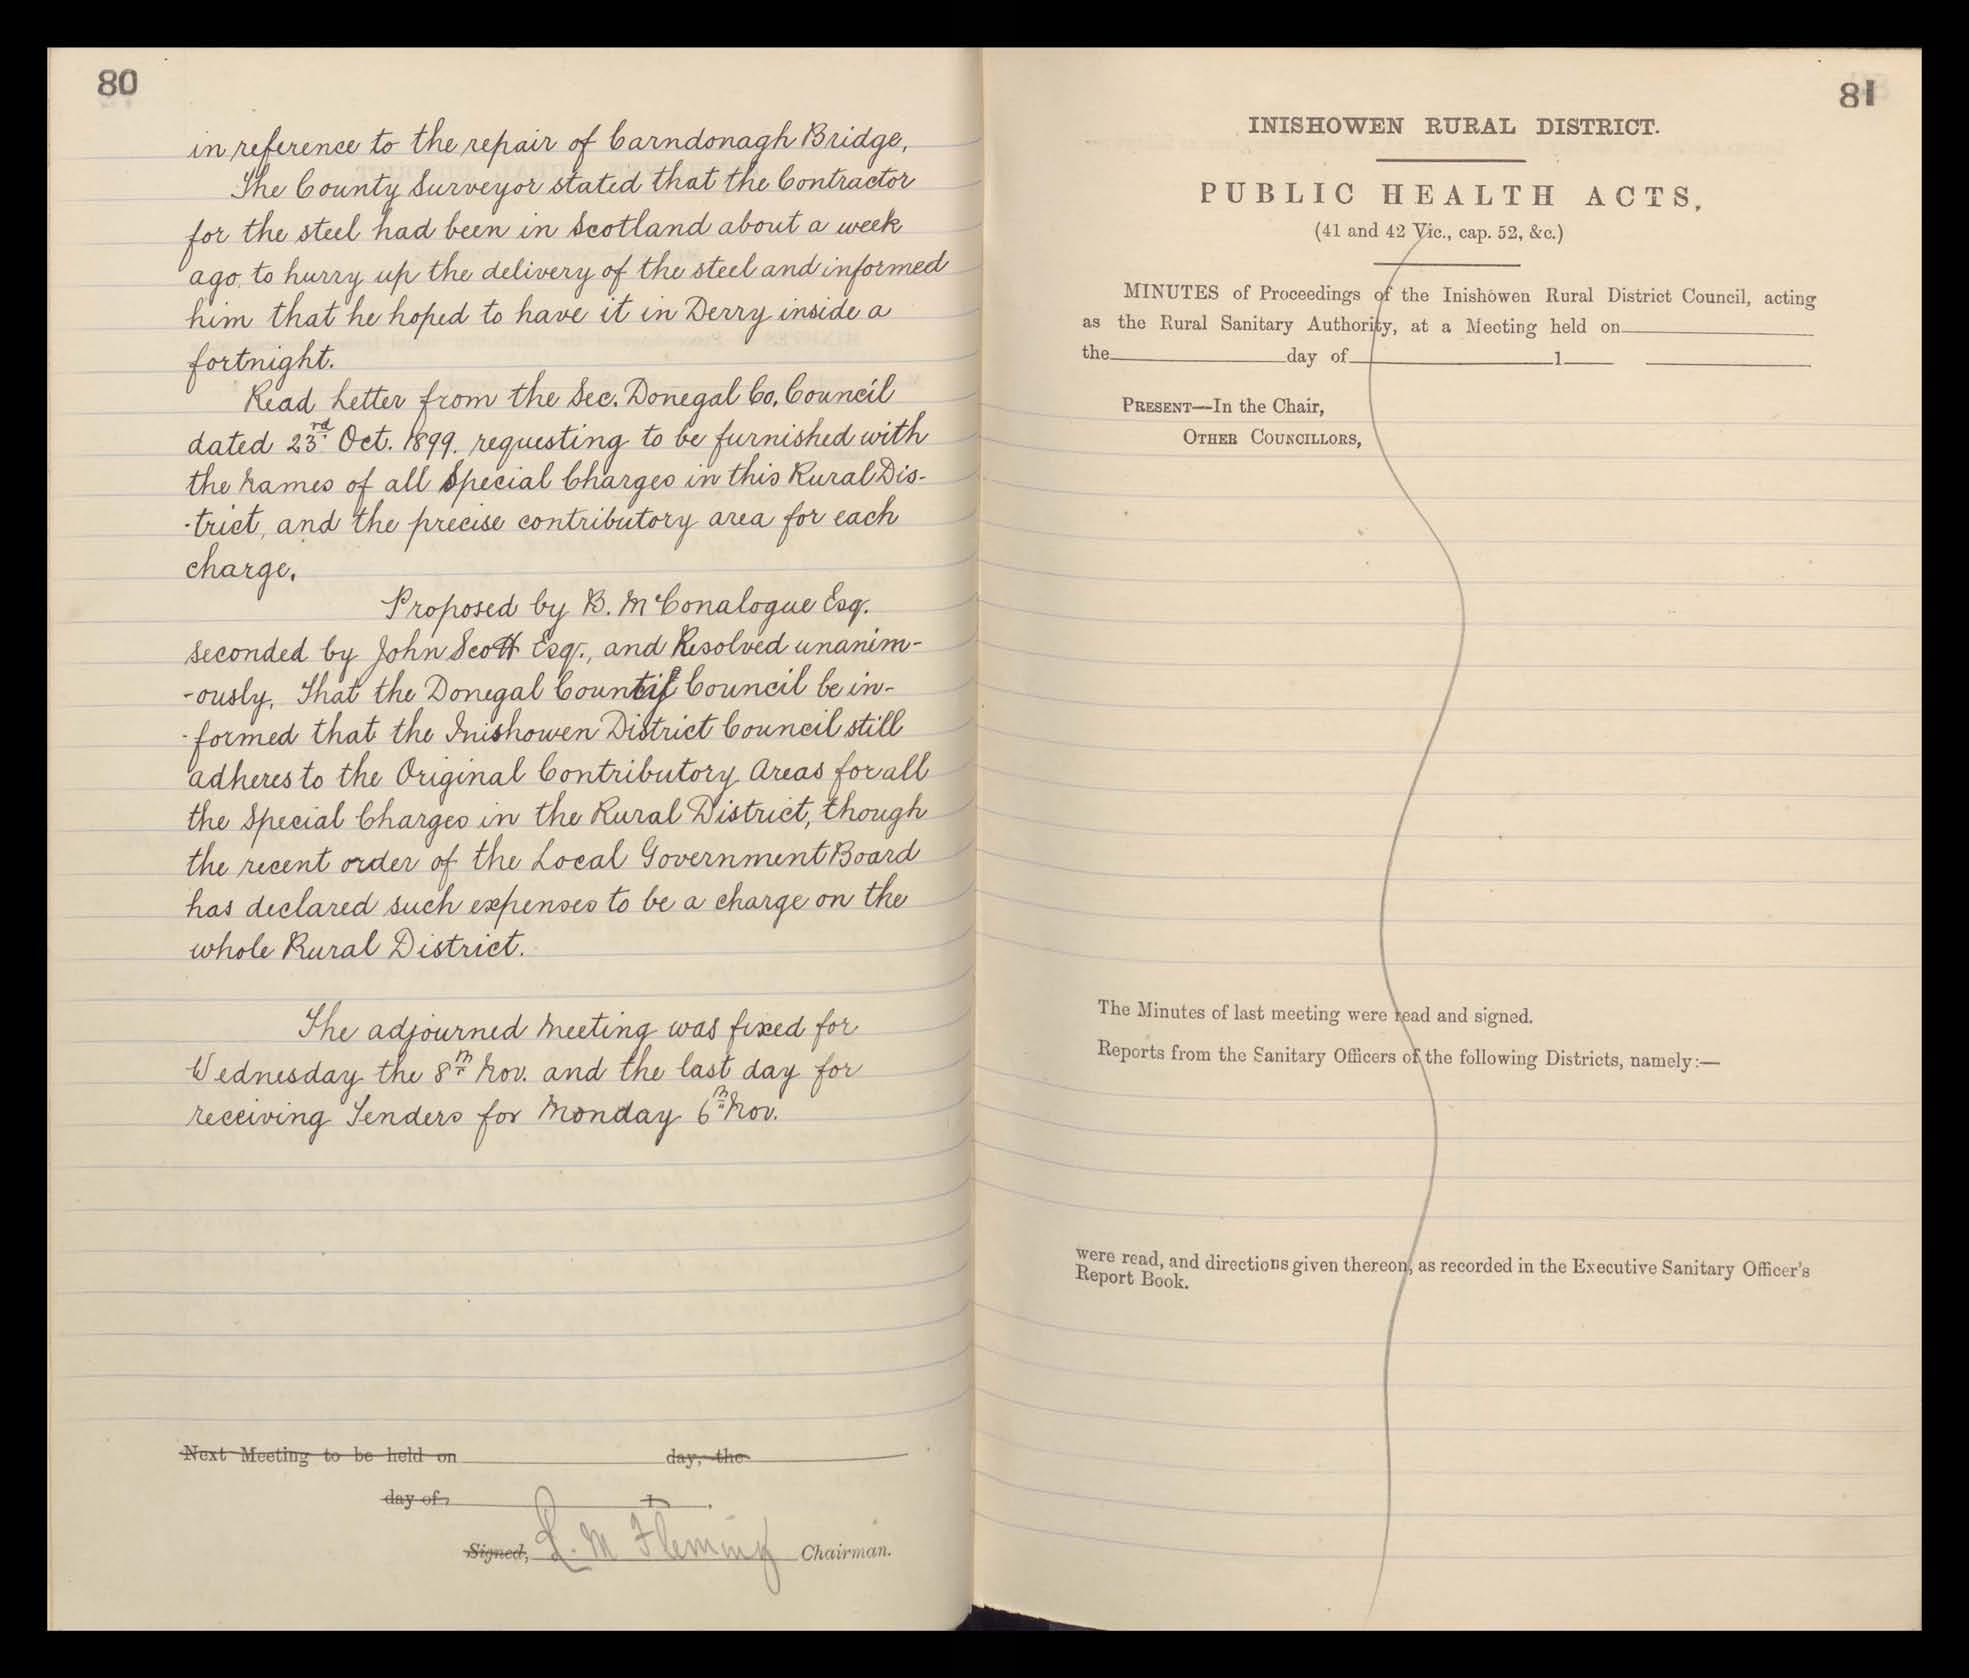 80
in reference to the repair of Carndonagh Bridge,
The County Surveyor stated that the Contractor
for the steel had been in Scotland about a week
ago, to hurry up the delivery of the steel and informed
him that he hoped to have it in Derry inside a
fortnight.
Read Letter from the Sec. Donegal Co. Council
dated 23rd Oct. 1899. requesting to be furnished with
the names of all Special Charges in this Rural Dis-
-trict, and the precise contributory area for each
charge.
Proposed by B. McConalogue Esq.
seconded by John Scott Esq., and Resolved unanim-
-ously, That the Donegal County Council be in-
-formed that the Inishowen District Council still
adheres to the Original Contributory Areas for all
the Special Charges in the Rural District, though
the recent order of the Local Government Board
has declared such expenses to be a charge on the
whole Rural District.
The adjourned Meeting was fixed for
Wednesday the 8th Nov. and the last day for
receiving Tenders for Monday 6th Nov.
Next Meeting to be held on day, the
day of, 1 .
Signed, L. M Fleming Chairman.
81
INISHOWEN RURAL DISTRICT.
PUBLIC HEALTH ACTS,
(41 and 42 Vic., cap. 52, &c.)
MINUTES of Proceedings of the Inishowen Rural District Council, acting
as the Rural Sanitary Authority, at a Meeting held on
the day of 1
PRESENT—In the Chair,
OTHER COUNCILLORS,
The Minutes of last meeting were read and signed.
Reports from the Sanitary Officers of the following Districts, namely:—
were read, and directions given thereon, as recorded in the Executive Sanitary Officer's
Report Book.